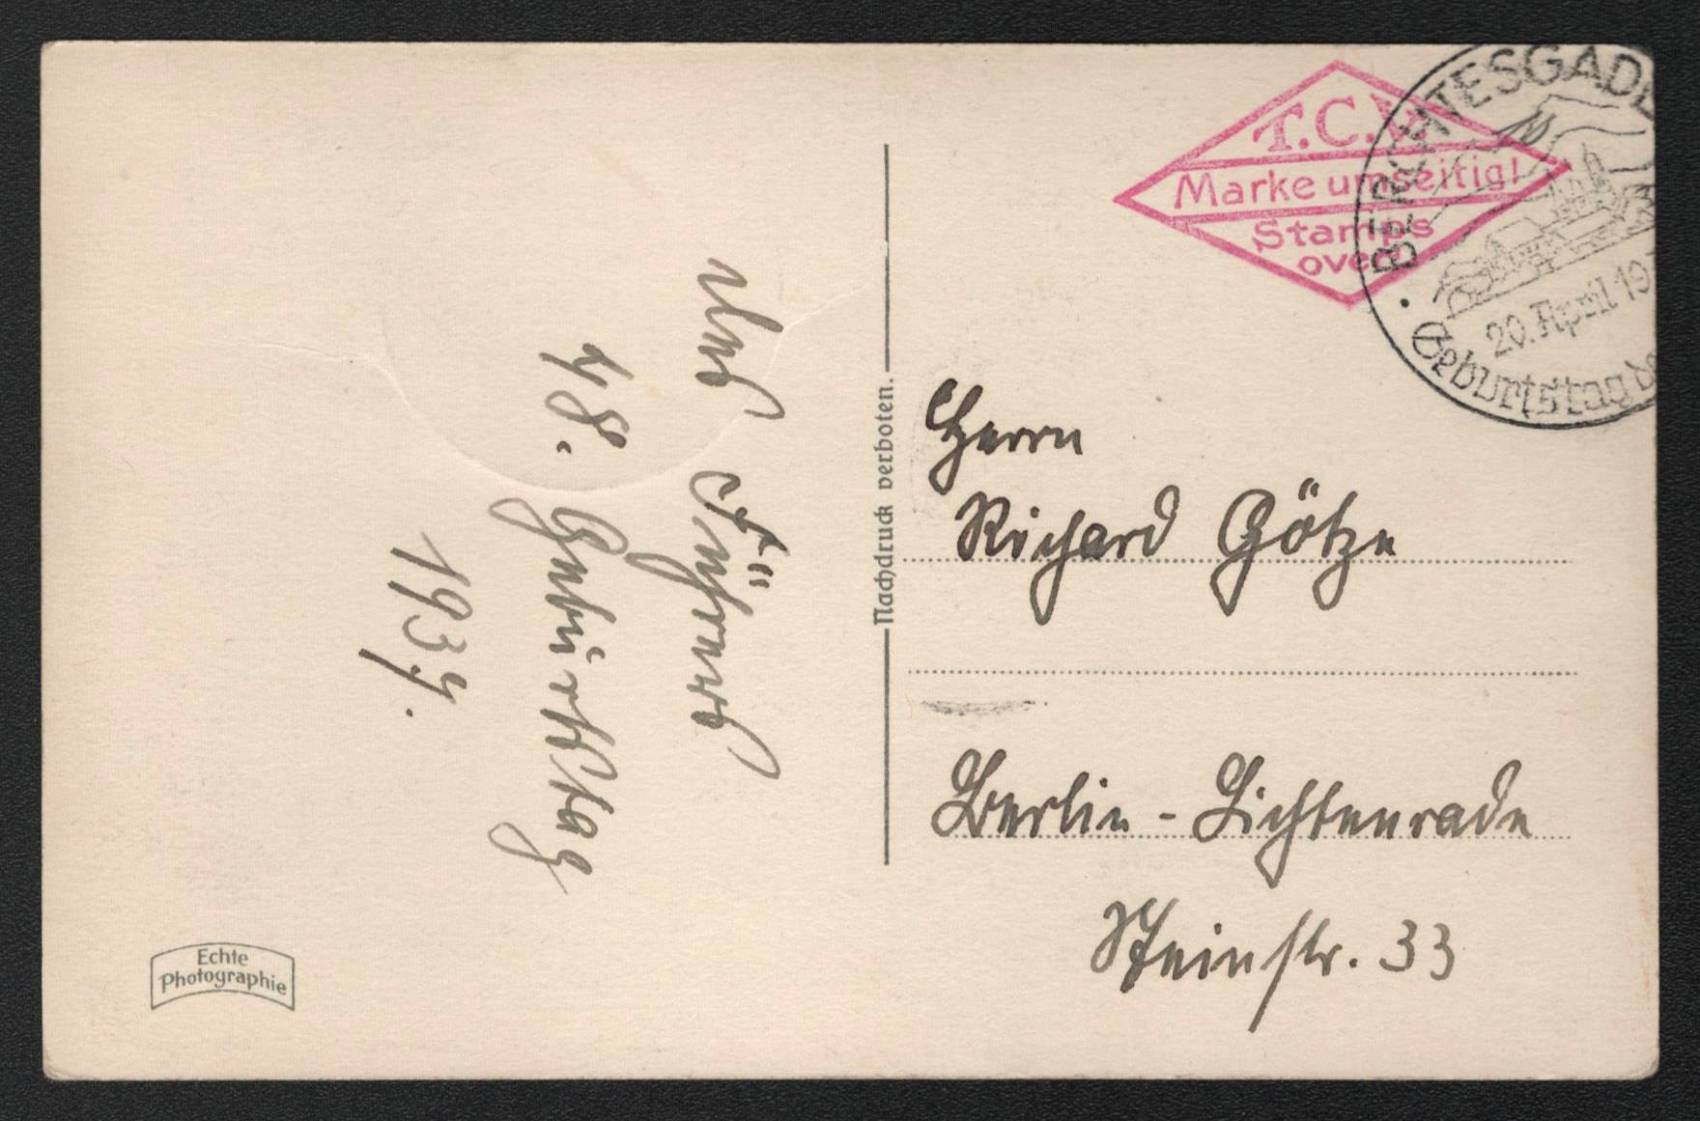 T.C.V.
Marke umseitig!
Stamps
over!
BERCHTESGADE
20. April 19
Geburtstag de
des Führers
48. Geburtstag
1937.
Nachdruck verboten.
Herrn
Richard Götze
Berlin - Lichtenrade
Steinstr. 33
Echte
Photographie